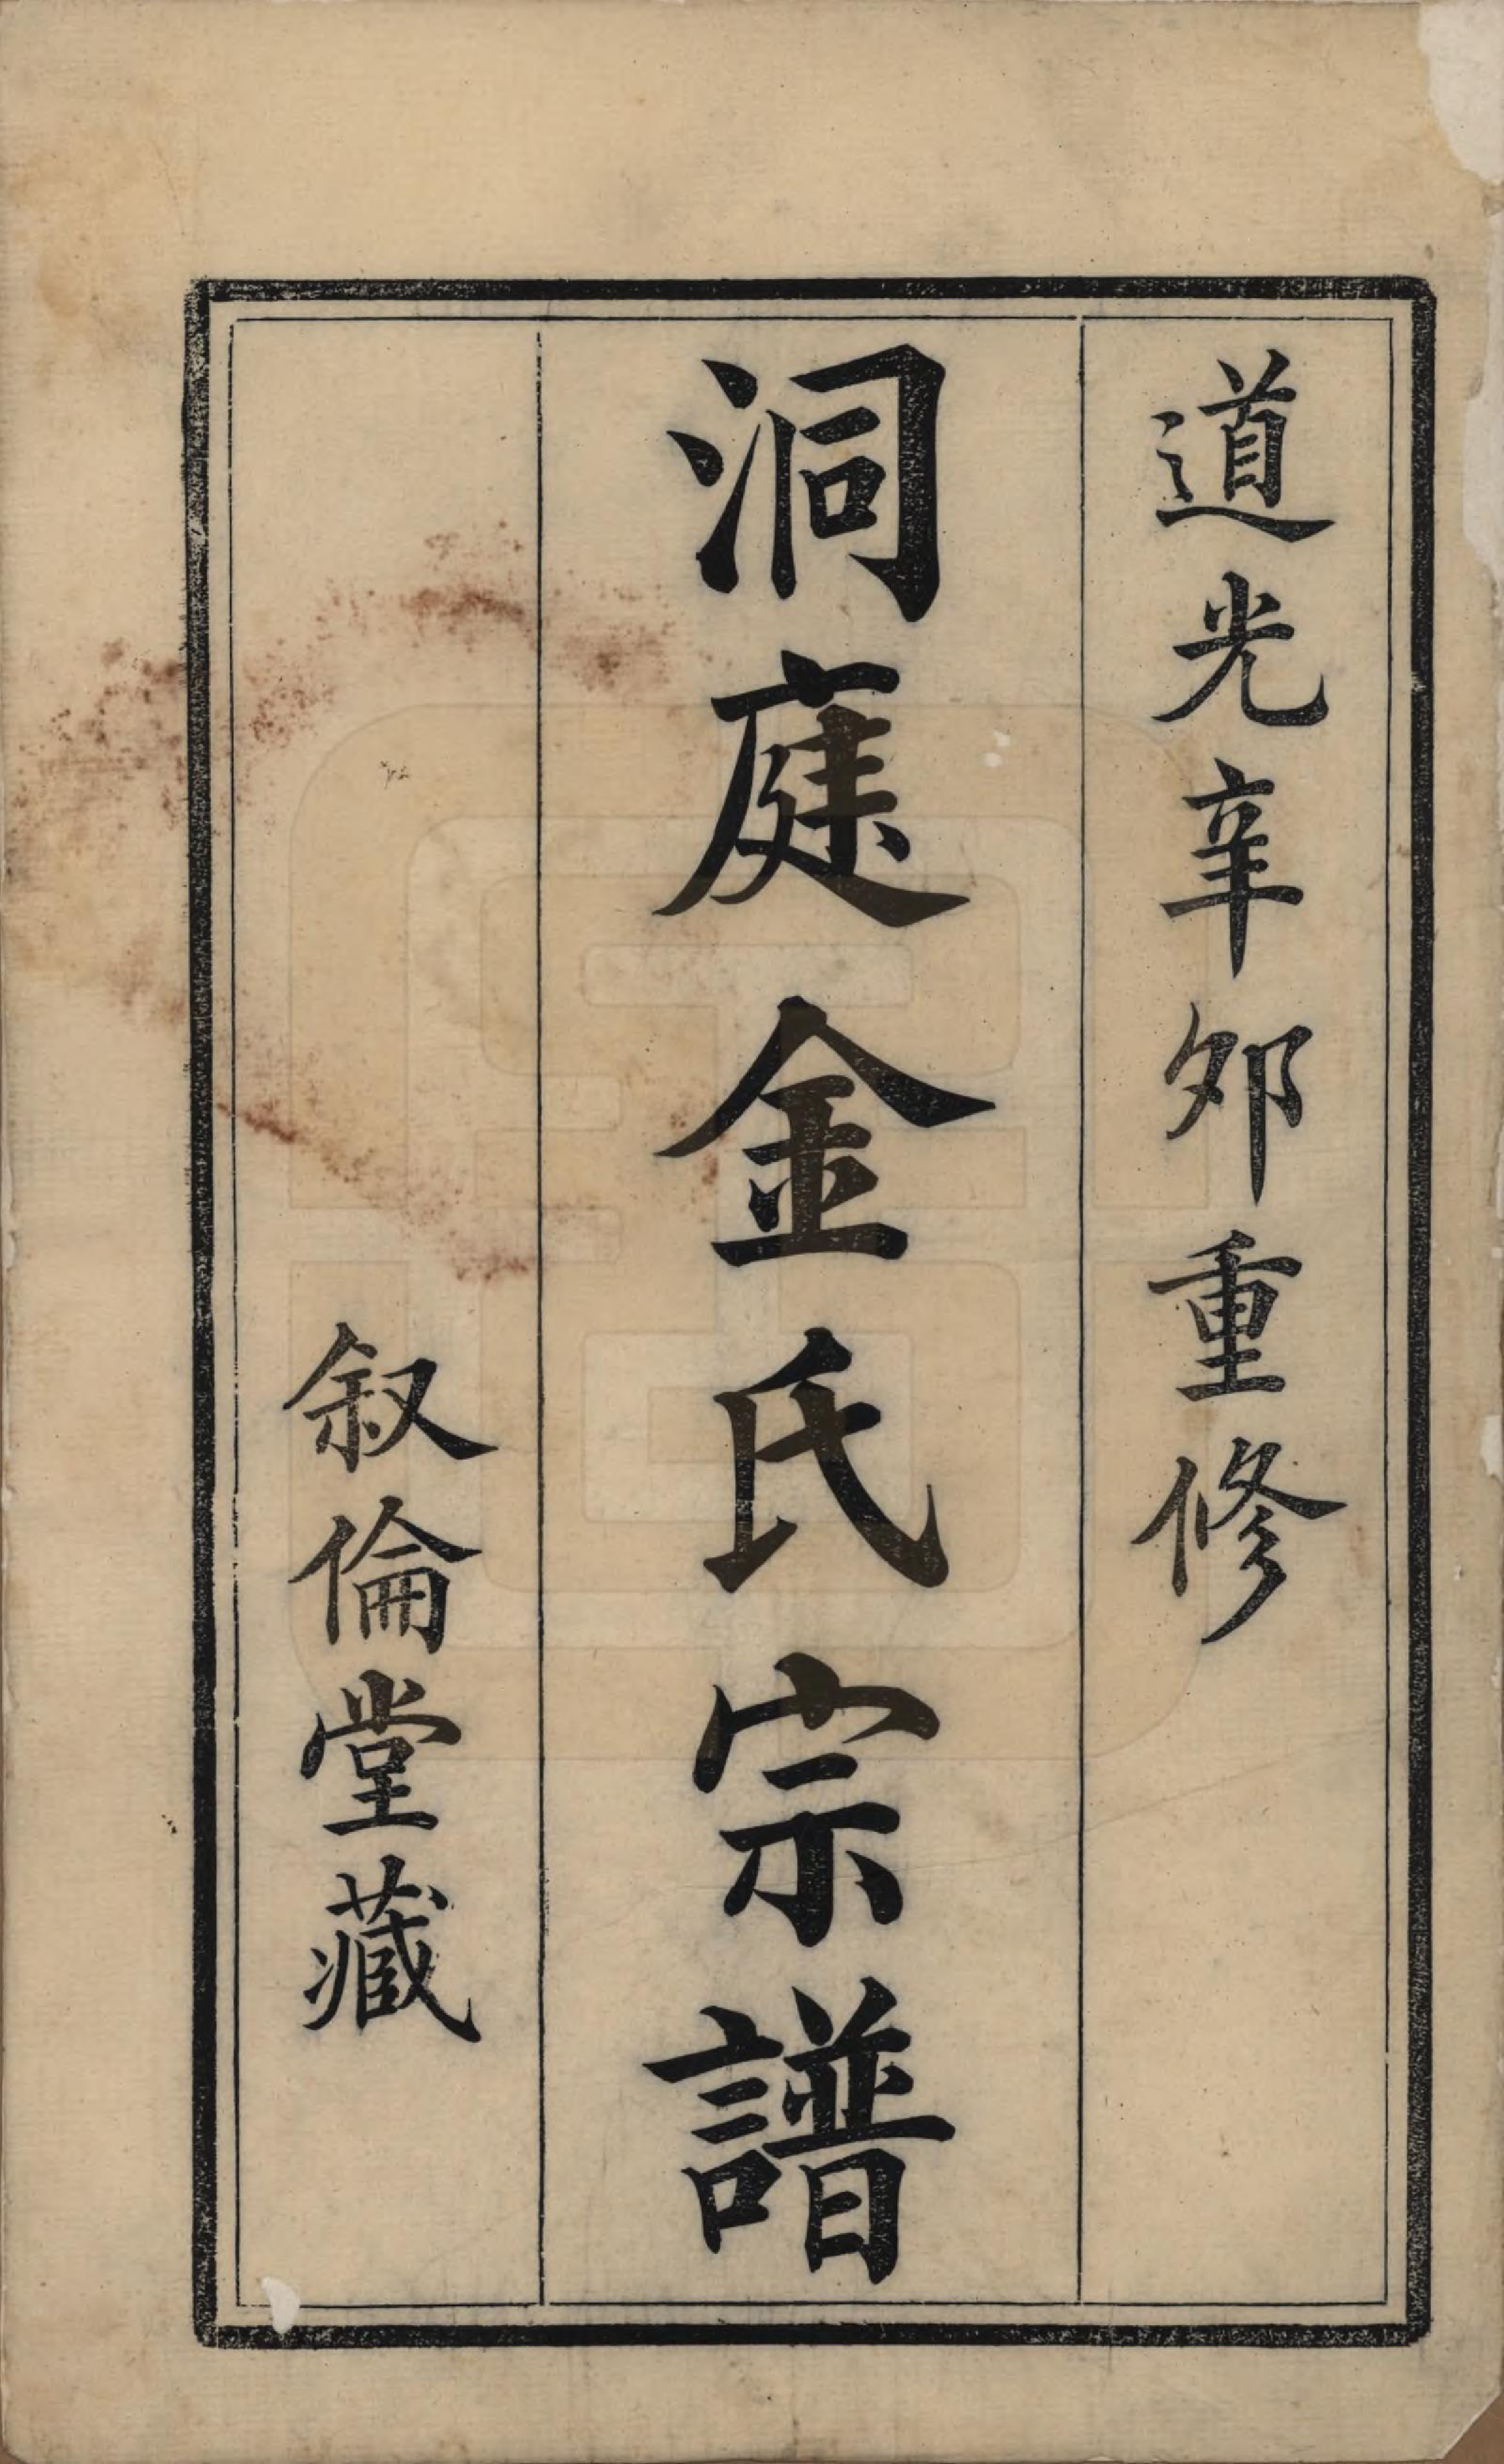 道光辛夘重修
洞庭金氏宗譜
叙倫堂藏